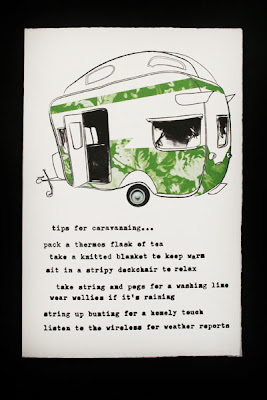 tips for caravanning...
pack a thermos flask of tea
take a knitted blanket to keep warm
sit in a stripy deckchair to relax
take string and pegs for a washing line
wear wellies if it's raining
string up bunting for a homely touch
listen to the wireless for weather reports